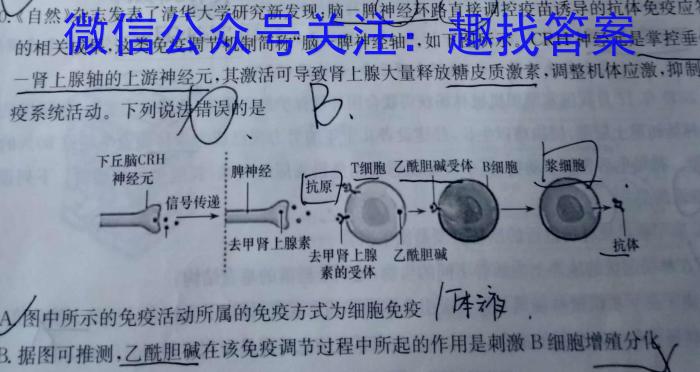 《自然》杂志发表了清华大学研究新发现:脑—脾神经环路直接调控疫苗诱导的抗体免疫应
的相关成果,这类免疫调节机制简称"脑—脾神经轴",如
微信公众号关注:趣找答案
是掌控垂
—肾上腺轴的上游神经元,其激活可导致肾上腺大量释放糖皮质激素,调整机体应激,抑制
疫系统活动。下列说法错误的是
B.
下丘脑CRH
神经元
信号传递
脾神经
去甲肾上腺素
抗原
T细胞
乙酰胆碱受体
B细胞
浆细胞
去甲肾上腺
素的受体
乙酰胆碱
抗体
A.图中所示的免疫活动所属的免疫方式为细胞免疫
体液
B.据图可推测,乙酰胆碱在该免疫调节过程中所起的作用是刺激B细胞增殖分化